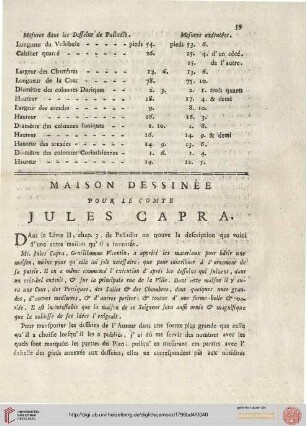 39
Mesures dans les Desseins de Palladio. Mesures exécutées.
Longueur du Vestibule - - - - - pieds 54. pieds 53. 6.
Cabinet quarré - - - - - 16. 25. 4. d'un côté.
25. de l'autre.
Largeur des Chambres - - - - - 13. 6. 13. 6.
Longueur de la Cour - - - - - 78. 75. 10.
Diamètre des colonnes Doriques - - 2. 3. 2. trois quarts
Hauteur - - - - - 18. 17. 4. & demi
Largeur des arcades - - - - - 9. 8. 10.
Hauteur - - - - - 16. 16. 3.
Diamètre des colonnes Ioniques - - 1. 10. 1. 8.
Hauteur - - - - - 16. 14. 9. & demi
Hauteur des arcades - - - - - 14. 9. 13. 6.
Diamètre des colonnes Corinthiennes - - 1. 6. 1. 4.
Hauteur - - - - - 14. 12. 5.
MAISON DESSINÉE
POUR LE COMTE
JULES CAPRA.
Dans le Livre II, chap. 3. de Palladio on trouve la description que voici
d'une autre maison qu'il a inventée.
Mr. Jules Capra, Gentilhomme Vicentin, a apprêté les matériaux pour bâtir une
maison, moins pour
la patrie. Il en a même commencé l'exécution d'après les desseins qui suivent, dans
un très-bel endroit, & sur la principale rue de la Ville. Dans cette maison il y aura
une Cour, des Portiques, des Salles & des Chambres, dont quelques unes grandes,
d'autres moyennes, & d'autres petites: & toutes d'une forme belle & variée.
Il est incontestable que la maison de ce Seigneur sera aussi ornée & magnifique
que la noblesse de ses idées l'exigeait.
Pour transporter les desseins de l'Auteur dans une forme plus grande que celle
qu'il a choisie lorsqu'il les a publiés, j'ai dû me servir des nombres avec lesquels
sont marquées les parties du Plan: puisqu'en confrontant ces parties avec
l'échelle des pieds annexée aux desseins, elles ne correspondent pas aux nombres
http://digi.ub.uni-heidelberg.de/diglit/scamozzi1796bd4/0040